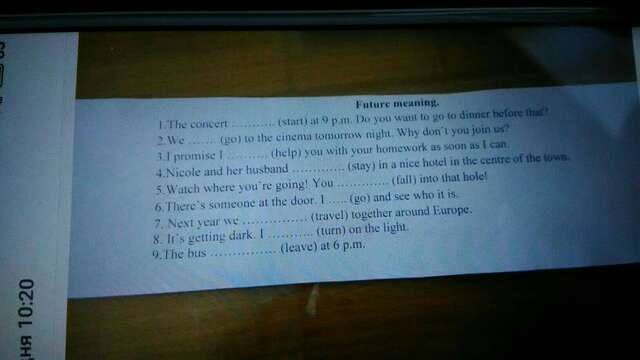 Future meaning.
1.The concert ........... (start) at 9 p.m. Do you want to go to dinner before that?
2.We ....... (go) to the cinema tomorrow night. Why don't you join us?
3.I promise I .......... (help) you with your homework as soon as I can.
4.Nicole and her husband ............. (stay) in a nice hotel in the centre of the town.
5.Watch where you're going! You ............. (fall) into that hole!
6.There's someone at the door. I ..... (go) and see who it is.
7. Next year we ................ (travel) together around Europe.
8. It's getting dark. I ............ (turn) on the light.
9.The bus ................ (leave) at 6 p.m.
ня 10:20